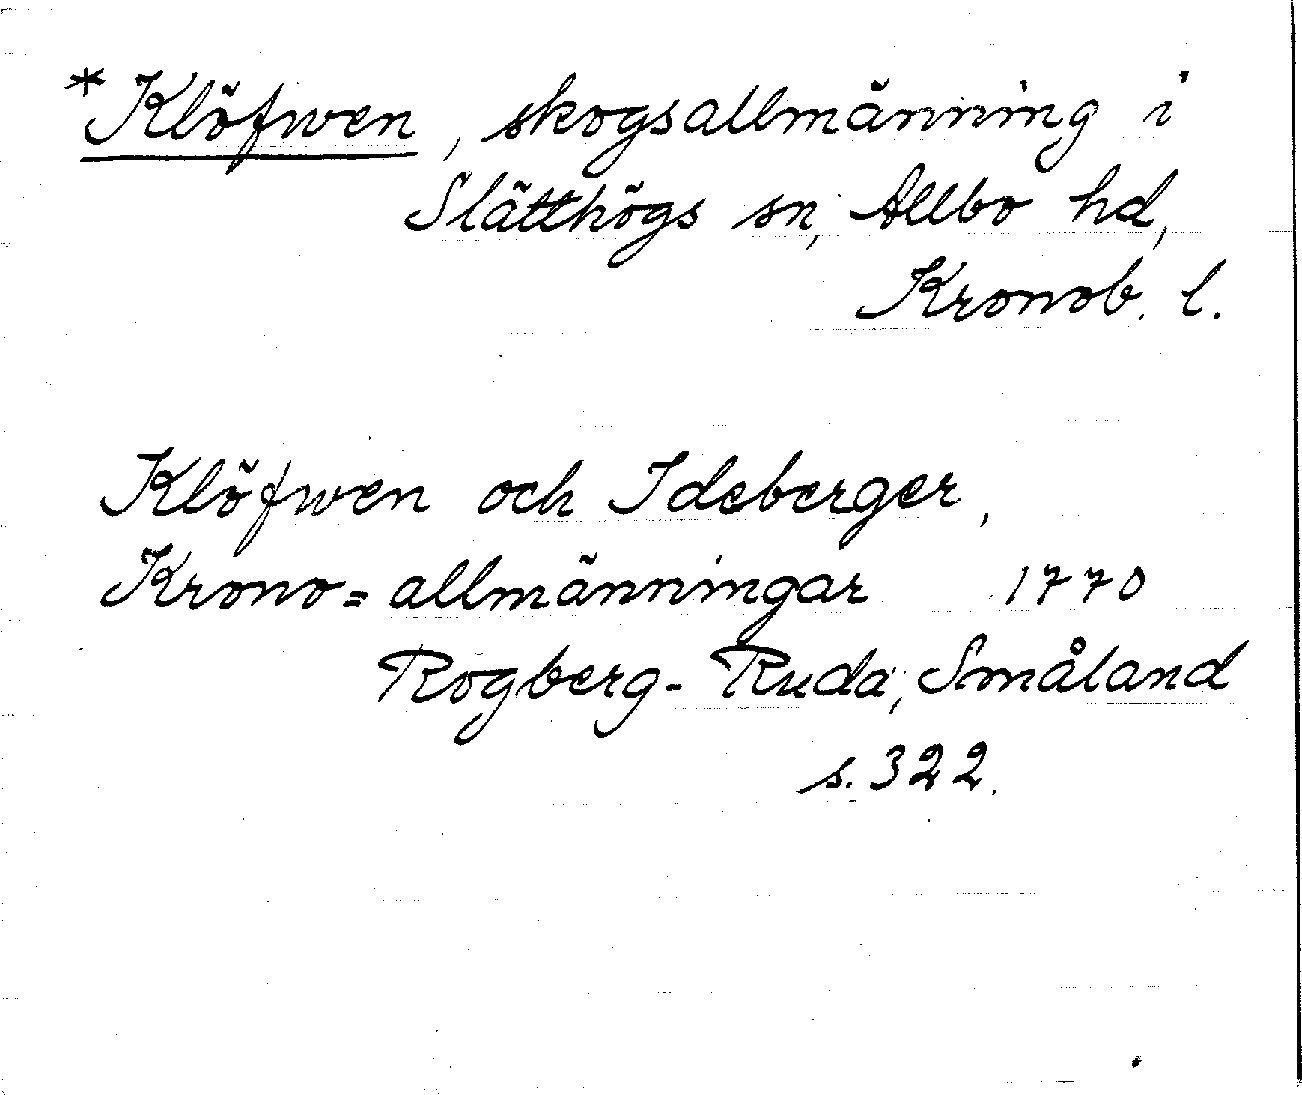 *Klöfwen, skogsallmänning i
Slätthögs sn, Allbo hd,
Kronob. l.
Klöfwen och Ideberger,
Krono= allmänningar 1770
Rogberg-Ruda, Småland
s. 322.